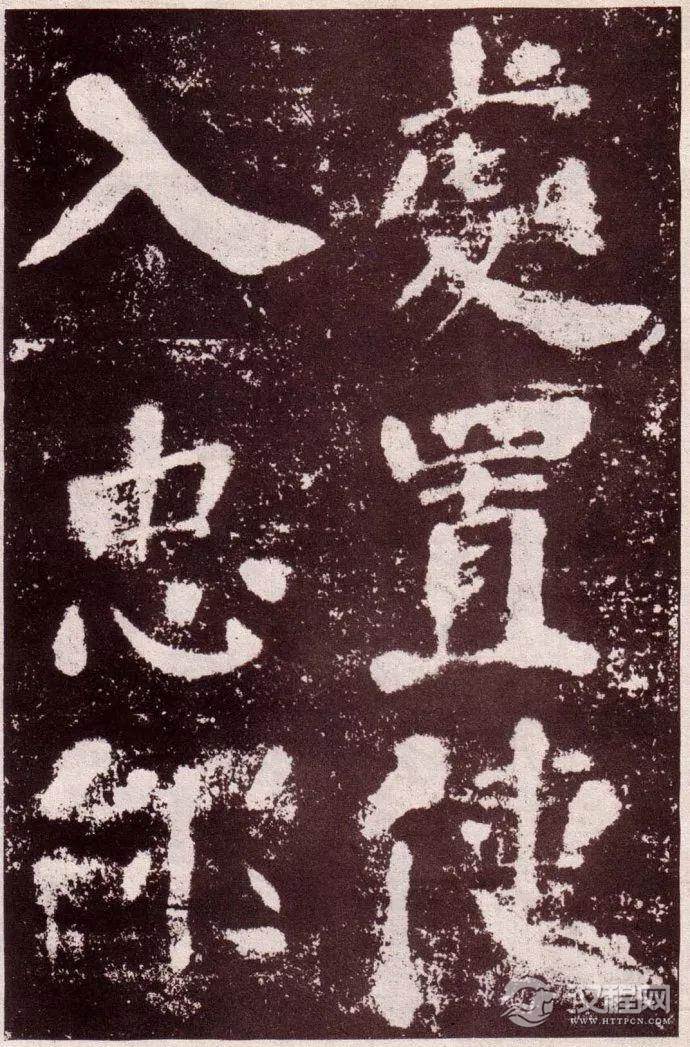 處置使
入忠
汉程网
WWW.HTTPCN.COM